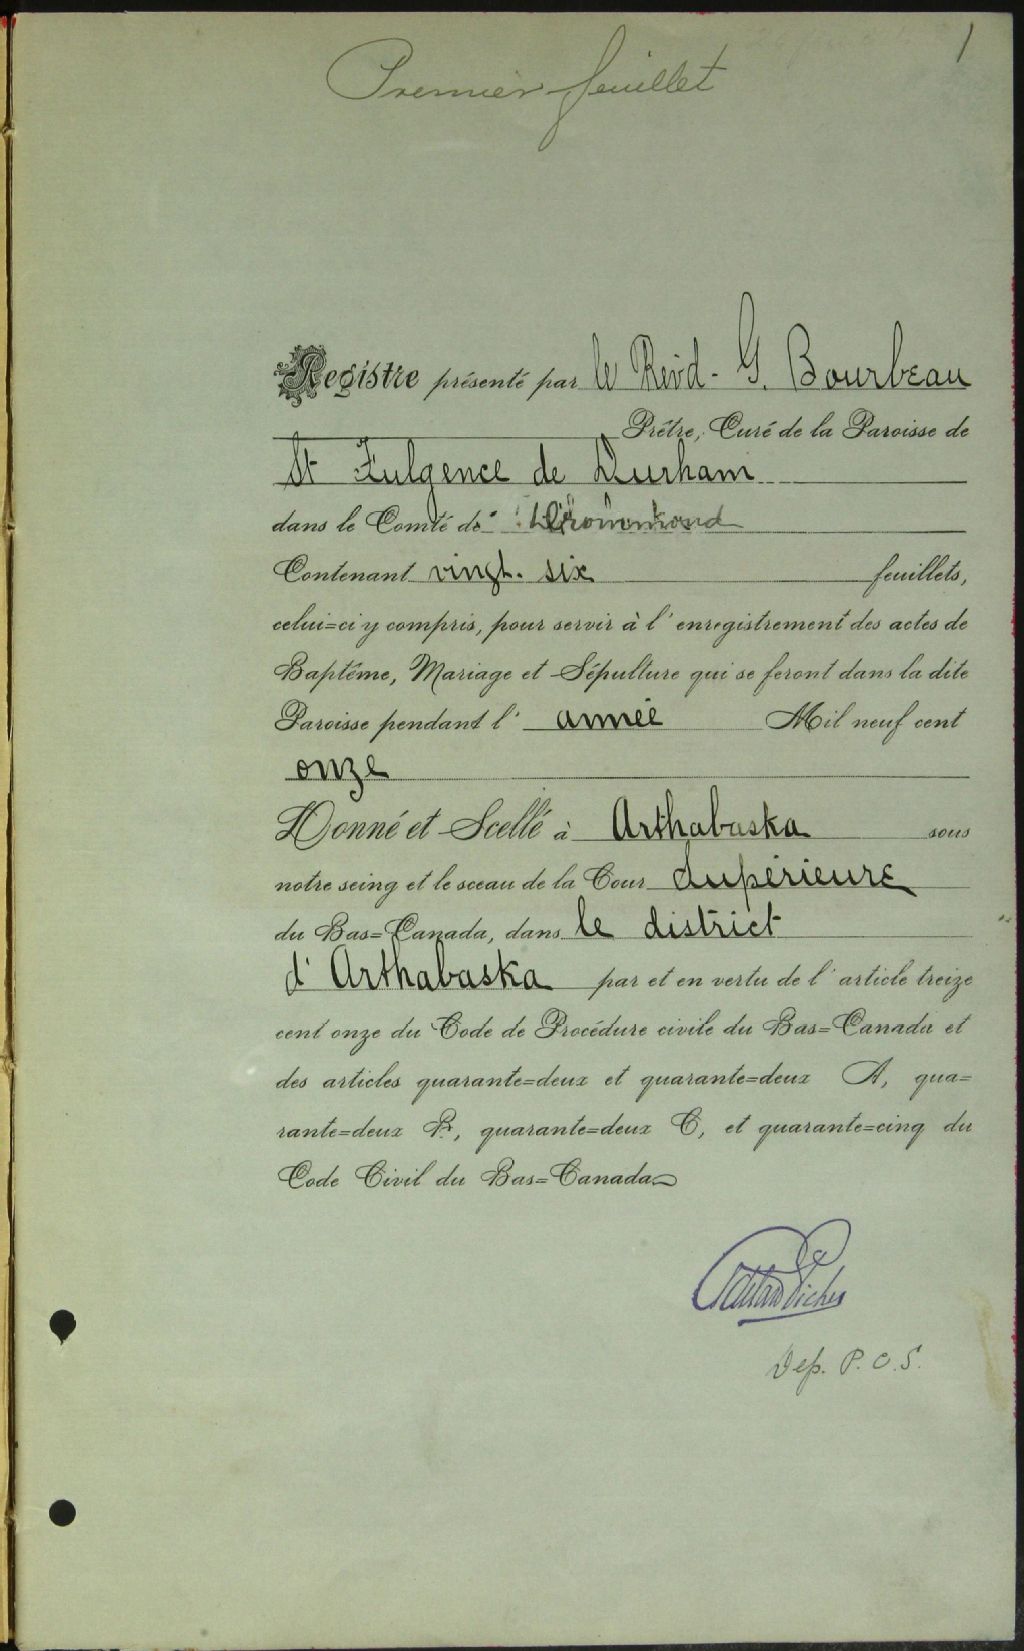 1
Premier feuillet
Registre présenté par le Revd - G. Bourbeau
Prêtre, Curé de la Paroisse de
St Fulgence de Durham
dans le Comté de Drummond
Contenant vingt-six feuillets,
celui=ci y compris, pour servir à l'enregistrement des actes de
Baptême, Mariage et Sépulture qui se feront dans la dite
Paroisse pendant l' année Mil neuf cent
onze
Donné et Scellé à Arthabaska sous
notre seing et le sceau de la Cour Supérieure
du Bas=Canada, dans le district
d' Arthabaska par et en vertu de l'article treize
cent onze du Code de Procédure civile du Bas=Canada et
des articles quarante=deux et quarante=deux A, qua=
rante=deux B, quarante=deux C, et quarante=cinq du
Code Civil du Bas=Canada
Dep. P. C. S.